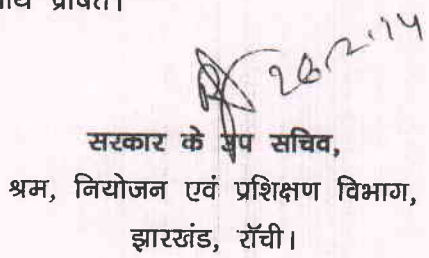 प्रेषित।
26.2.14
सरकार के उप सचिव,
श्रम, नियोजन एवं प्रशिक्षण विभाग,
झारखंड, राँची।